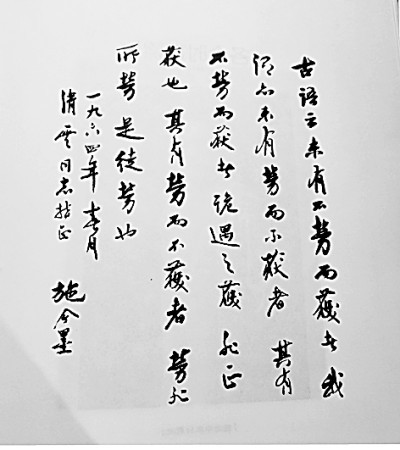 古语云未有不劳而获者 或
谓亦未有劳而不获者 其有
不劳而获者诡遇之获 非正
获也 其有劳而不获者 劳非
所劳 是徒劳也
一九六四年春月
清霙同志指正
施今墨